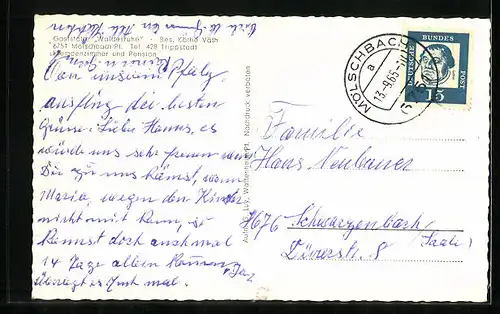 Gaststätte "Waldesruhe" · Bes. Käthe Vath
6751 Mölschbach/Pf. Tel. 428 Trippstadt
Fremdenzimmer und Pension
Von unserem Pfalz,
ausflug die besten
Grüsse. Liebe Hanns, es
würde uns sehr freuen wenn
Du zu uns kämst, wenn
Maria, wegen den Kinder
nicht mit kann, so
kannst doch auch mal
14 Tage allein kommen,
überlegt es Euch mal.
Nachdruck verboten
MÖLSCHBACH
a
13.-9.65.-11
DEUTSCHE
BUNDES
POST
15
Familie
Hans Neubauer
8676 Schwarzenbach/
Saale
Dürerstr. 8